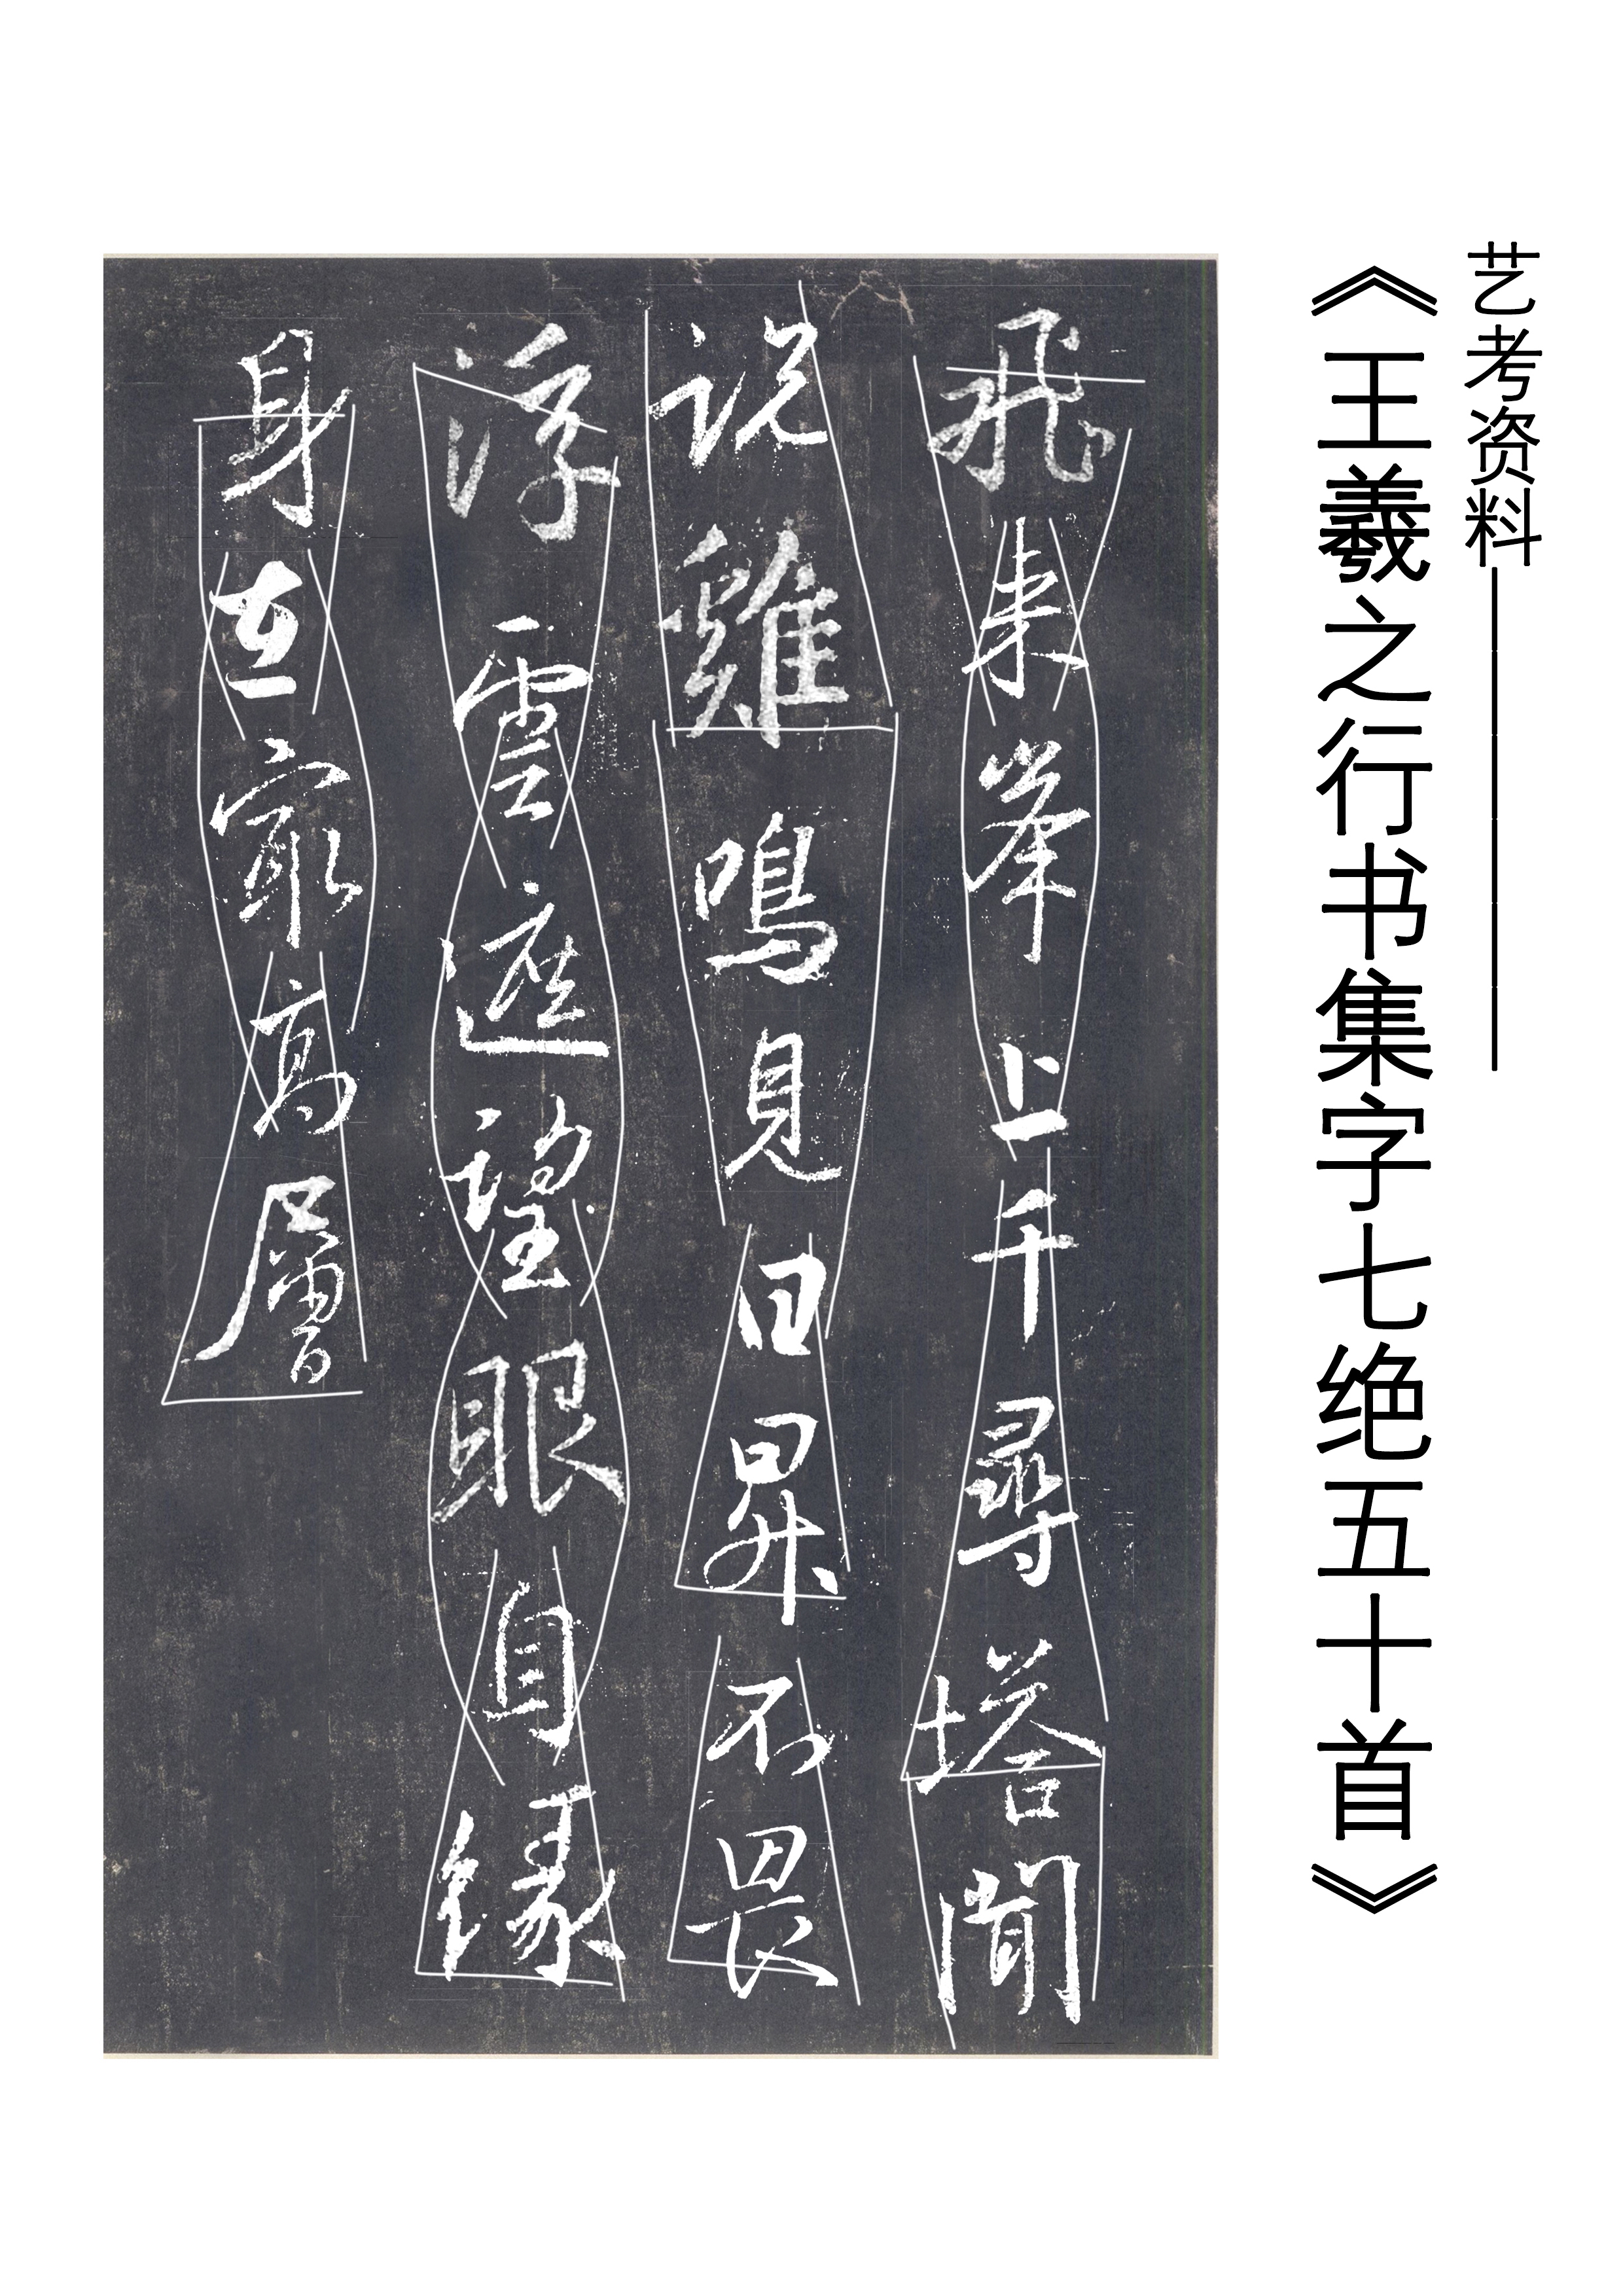 艺考资料——————
《王羲之行书集字七绝五十首》
飛來峯上千尋塔聞
説雞鳴見日昇不畏
浮雲遮望眼自緣
身在最高層